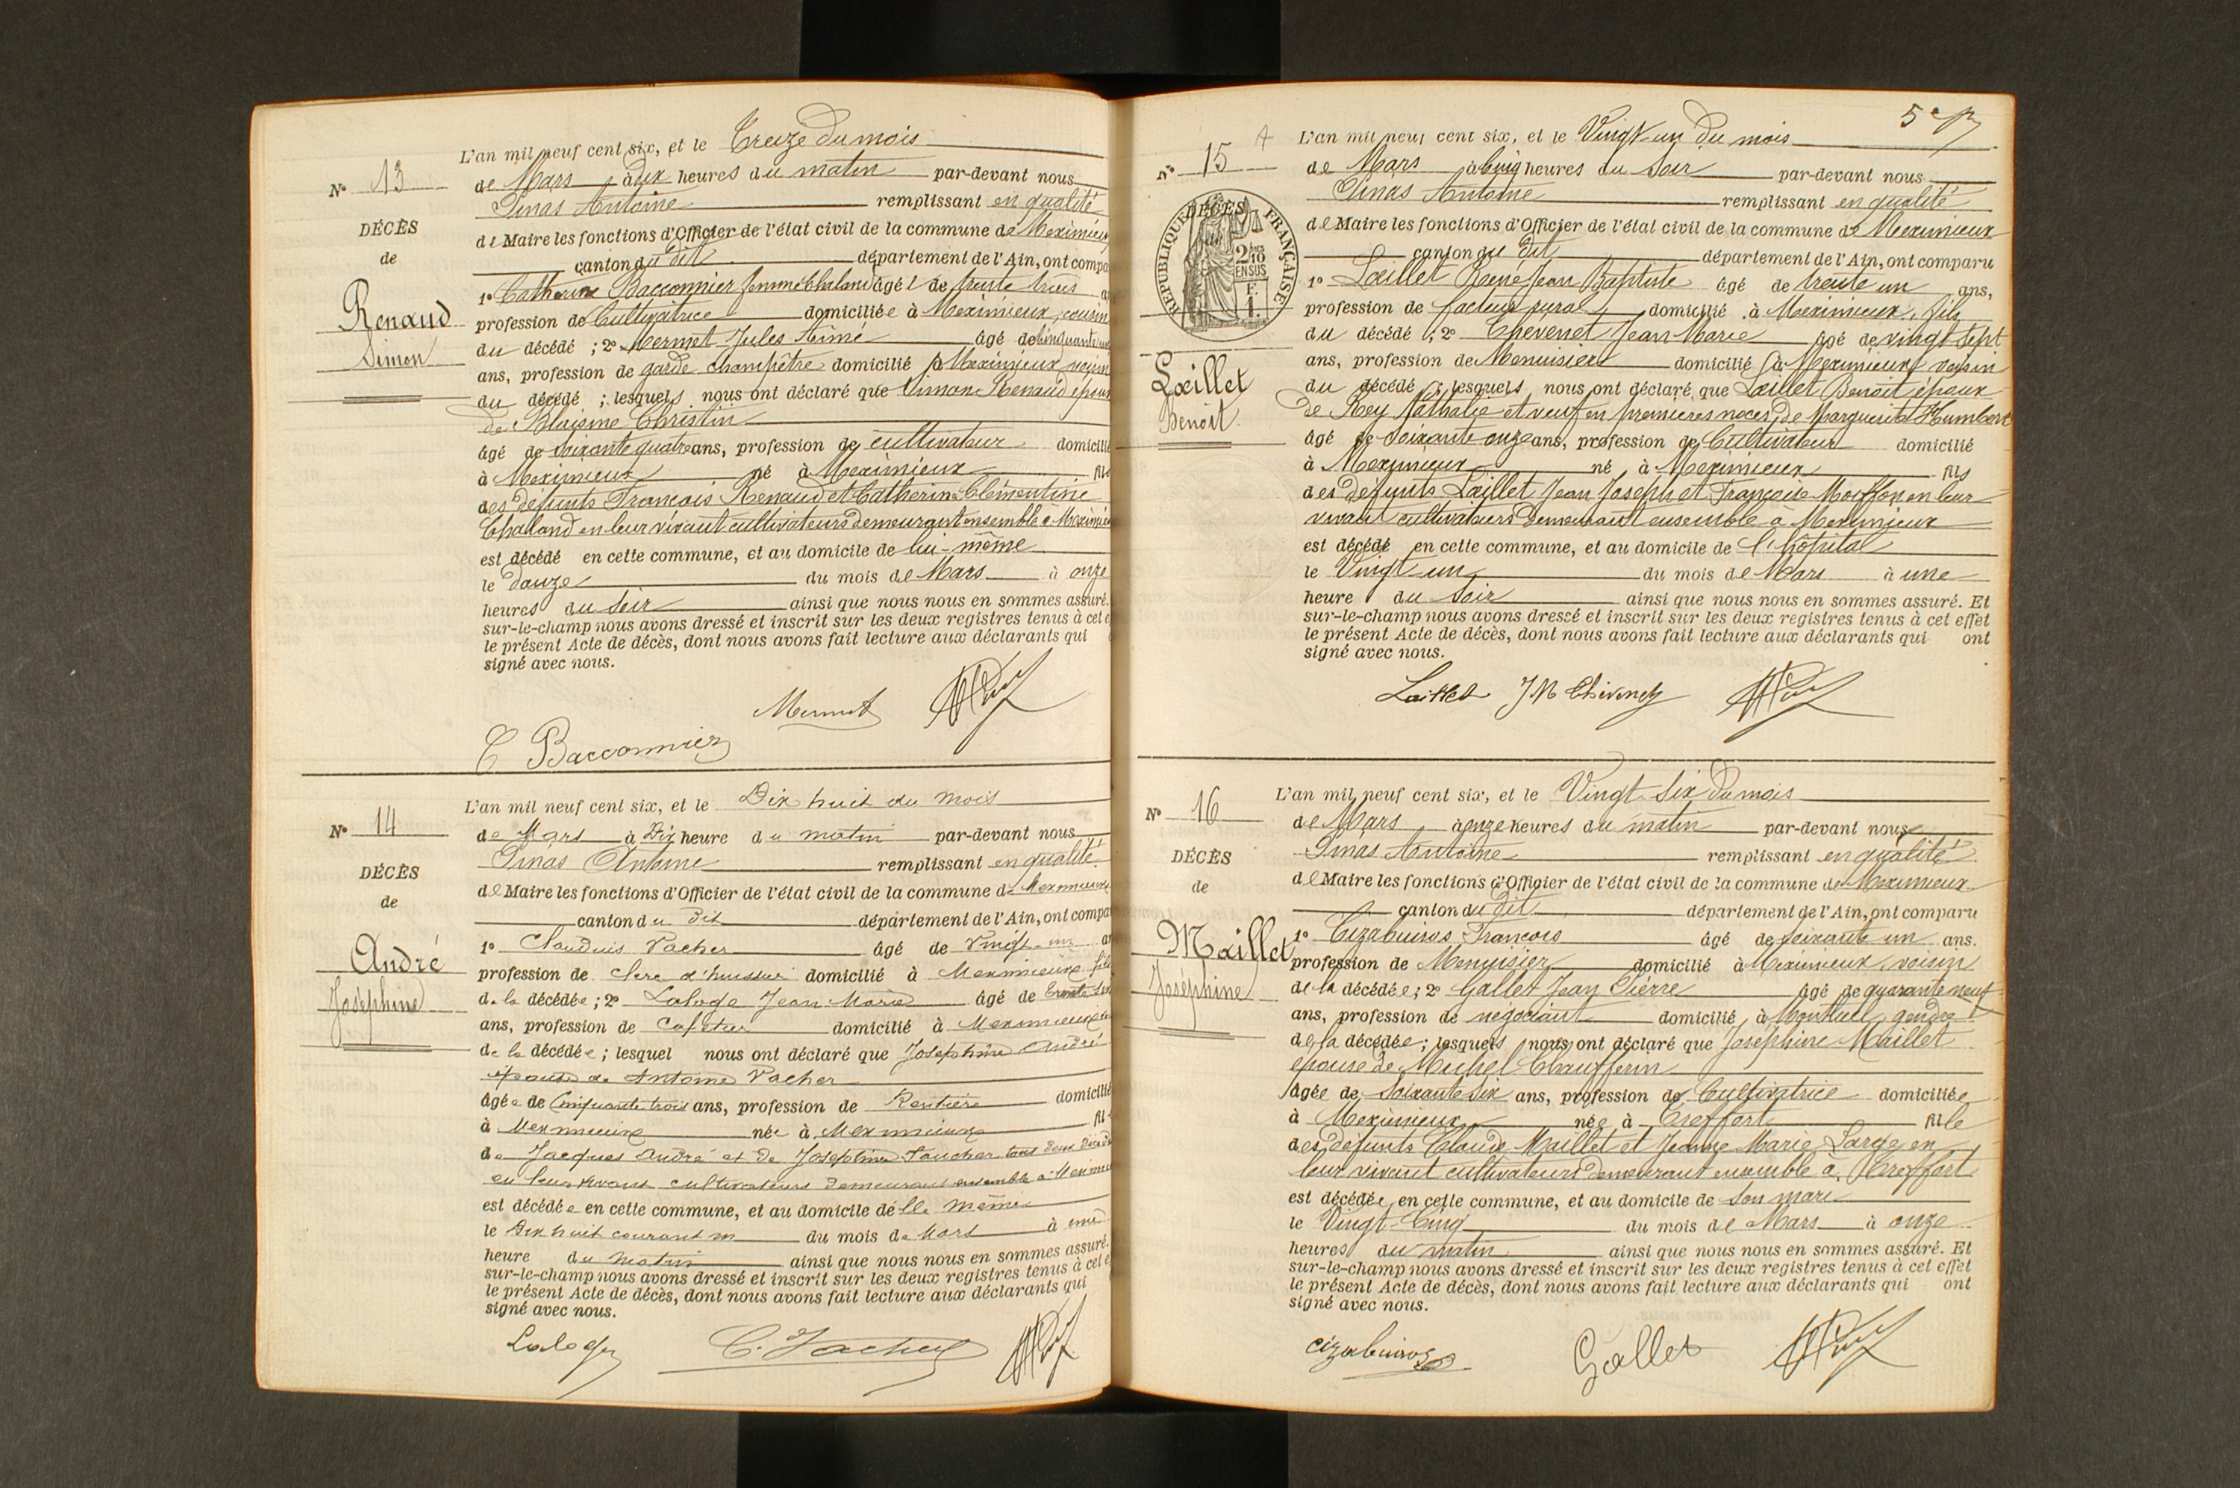 N° 13
DÉCÈS
de
Renaud
Simon
L'an mil neuf cent six, et le Treize du mois
de Mars à dix heures du matin par-devant nous
Pinas Antoine remplissant en qualité
de Maire les fonctions d'Officier de l'état civil de la commune de Meximieux
canton du dit département de l'Ain, ont compa
1° Catherine Bacconnier femme Chaland âgée de trente trois a
profession de Cultivatrice domiciliée à Meximieux, cousin
du décédé ; 2° Mermet Jules Aimé âgé de cinquante
ans, profession de garde champêtre domicilié à Meximieux voisin
du décédé ; lesquels nous ont déclaré que Simon Renaud époux
de Blaisine Christin
âgé de soixante quatre ans, profession de cultivateur domicilié
à Meximieux né à Meximieux fils
des défunts François Renaud et Catherine Clémentine
Chaland en leur vivant cultivateurs demeurant ensemble à Meximieu
est décédé en cette commune, et au domicile de lui-même
le douze du mois de Mars à onze
heures du Soir ainsi que nous nous en sommes assuré.
sur-le-champ nous avons dressé et inscrit sur les deux registres tenus à cet e
le présent Acte de décès, dont nous avons fait lecture aux déclarants qui
signé avec nous.
Mermet
C Bacconnier
N° 14
DÉCÈS
de
André
Joséphine
L'an mil neuf cent six, et le Dix huit du mois
de Mars à Dix heure du matin par-devant nous
Pinas Antoine remplissant en qualité
de Maire les fonctions d'Officier de l'état civil de la commune de Meximieux
canton du dit département de l'Ain, ont compa
1° Claudius Vacher âgé de Vingt-un a
profession de Clerc d'huissier domicilié à Meximieux fils
de la décédée ; 2° Laloge Jean Marie âgé de trente
ans, profession de Cafetier domicilié à Meximieux
de la décédée ; lesquel nous ont déclaré que Joséphine André
épouse de Antoine Vacher
âgée de Cinquante trois ans, profession de Rentière domicilié
à Meximieux née à Meximieux fil
de Jacques André et de Joséphine Faucher tous deux
en leur vivant cultivateurs demeurant ensemble à Meximie
est décédée en cette commune, et au domicile d'elle même
le Dix huit courant du mois de Mars à une
heure du Matin ainsi que nous nous en sommes assuré.
sur-le-champ nous avons dressé et inscrit sur les deux registres tenus à cet e
le présent Acte de décès, dont nous avons fait lecture aux déclarants qui
signé avec nous.
Laloge C. Vacher
5e
N° 15
RÉPUBLIQUE FRANÇAISE
DÉCÈS
2/10
EN SUS
F.
1.
Laillet
Benoît
L'an mil neuf cent six, et le Vingt-un du mois
de Mars à Cinq heures du Soir par-devant nous
Pinas Antoine remplissant en qualité
de Maire les fonctions d'Officier de l'état civil de la commune de Meximieux
canton du dit département de l'Ain, ont comparu
1° Laillet René Jean Baptiste âgé de trente un ans,
profession de facteur rural domicilié à Meximieux, fils
du décédé ; 2° Chevenet Jean Marie âgé de vingt sept
ans, profession de Menuisier domicilié à Meximieux voisin
du décédé ; lesquels nous ont déclaré que Laillet Benoît époux
de Rey Nathalie et veuf en premières noces de Marguerite Humbert
âgé de soixante onze ans, profession de Cultivateur domicilié
à Meximieux né à Meximieux fils
des défunts Laillet Jean Joseph et Françoise Moiffon en leur
vivant cultivateurs demeurant ensemble à Meximieux
est décédé en cette commune, et au domicile de l'hôpital
le Vingt-un du mois de Mars à une
heure du Soir ainsi que nous nous en sommes assuré. Et
sur-le-champ nous avons dressé et inscrit sur les deux registres tenus à cet effet
le présent Acte de décès, dont nous avons fait lecture aux déclarants qui ont
signé avec nous.
Laillet J M Chevenet
N° 16
DÉCÈS
de
Maillet
Joséphine
L'an mil neuf cent six, et le Vingt-Six du mois
de Mars à onze heures du matin par-devant nous
Pinas Antoine remplissant en qualité
de Maire les fonctions d'Officier de l'état civil de la commune de Meximieux
canton du dit département de l'Ain, ont comparu
1° Cizabuiros François âgé de soixante un ans.
profession de Menuisier domicilié à Meximieux voisin
de la décédée ; 2° Gallet Jean Pierre âgé de quarante neuf
ans, profession de négociant domicilié à Montluel, gendre
de la décédée ; lesquels nous ont déclaré que Joséphine Maillet
épouse de Michel Chaufferin
âgée de Soixante Six ans, profession de Cultivatrice domiciliée
à Meximieux née à Treffort fille
des défunts Claude Maillet et Jeanne Marie Large en
leur vivant cultivateurs demeurant ensemble à Treffort
est décédée en cette commune, et au domicile de son mari
le Vingt-Cinq du mois de Mars à onze
heures du matin ainsi que nous nous en sommes assuré. Et
sur-le-champ nous avons dressé et inscrit sur les deux registres tenus à cet effet
le présent Acte de décès, dont nous avons fait lecture aux déclarants qui ont
signé avec nous.
Cizabuiros Gallet